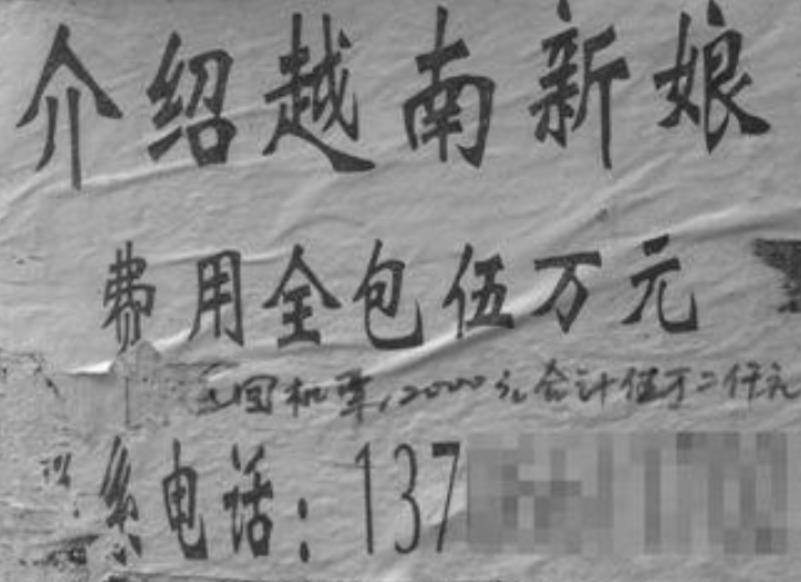 介绍越南新娘
费用全包伍万元
回机票,2000元合计伍万二仟元
系电话:137